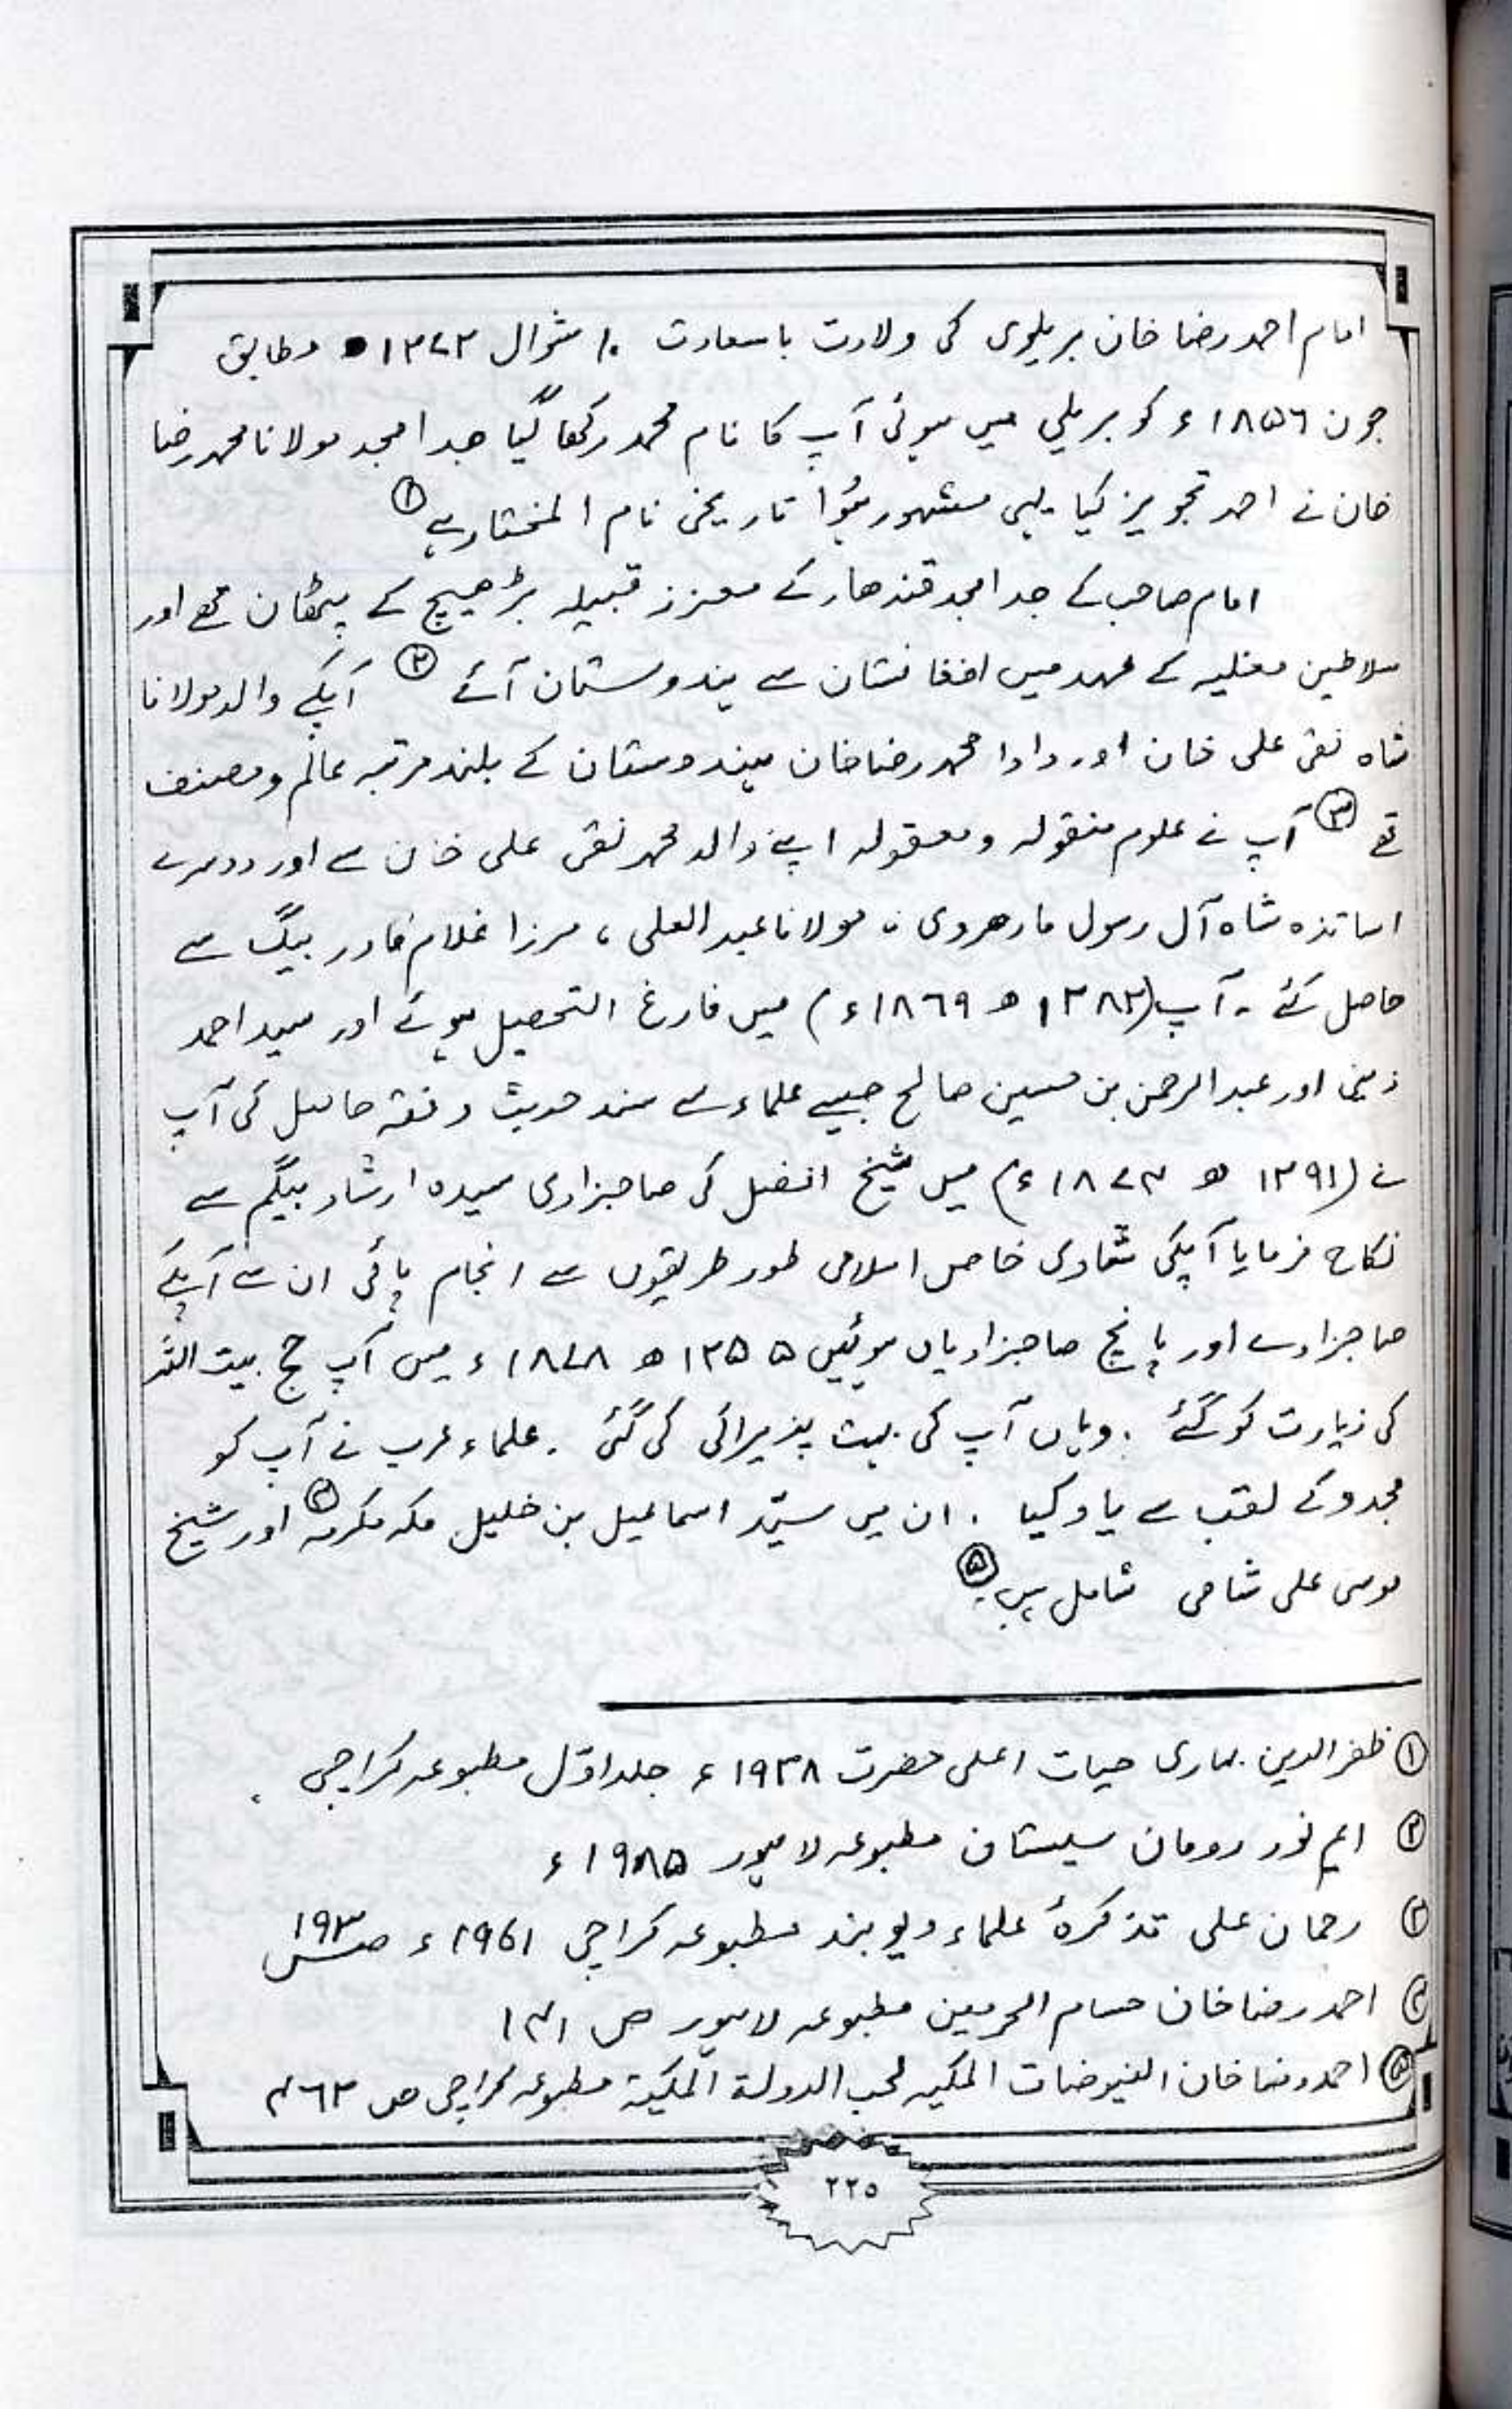 امام احمد رضا خان بریلوی کی ولادت باسعادت ۱۰ شوال ۱۲۷۲ھ مطابق
جون ۱۸۵۶ء کو بریلی میں ہوئی آپ کا نام محمد رکھا گیا جد امجد مولانا محمد رضا
خان نے احمد تجویز کیا یہی مشہور ہُوا تاریخی نام المختار ہے ①
امام صاحب کے جد امجد قندھار کے معزز قبیلہ بڑھیچ کے پٹھان تھے اور
سلاطین مغلیہ کے عہد میں افغانستان سے ہندوستان آئے ② آپکے والد مولانا
شاہ نقی علی خان اور دادا محمد رضا خان ہندوستان کے بلند مرتبہ عالم و مصنف
تھے ③ آپ نے علوم منقولہ و معقولہ اپنے والد محمد نقی علی خان سے اور دوسرے
اساتذہ شاہ آل رسول مارھروی ، مولانا عبد العلی ، مرزا غلام قادر بیگ سے
حاصل کئے ۔ آپ (۱۲۸۲ھ ۱۸۶۹ء) میں فارغ التحصیل ہوئے اور سید احمد
زینی اور عبد الرحمن بن حسین صالح جیسے علماء سے سند حدیث و فقہ حاصل کی آپ
نے (۱۲۹۱ ھ ۱۸۷۴ء) میں شیخ افضل کی صاحبزادی سیدہ ارشاد بیگم سے
نکاح فرمایا آپکی شادی خاص اسلامی طور طریقوں سے انجام پائی ان سے آپکے
صاحبزادے اور پانچ صاحبزادیاں ہوئیں ۱۲۵۵ھ ۱۸۷۸ء میں آپ حج بیت اللہ
کی زیارت کو گئے . وہاں آپ کی بہت پذیرائی کی گئی . علماء عرب نے آپ کو
مجدد کے لقب سے یاد کیا . ان میں سیّد اسماعیل بن خلیل مکہ مکرمہ ④ اور شیخ
موسی علی شامی شامل ہیں ⑤
① ظفر الدین بہاری حیات اعلی حضرت ۱۹۳۸ء جلد اوّل مطبوعہ کراچی .
② ایم نور رومان سیستان مطبوعہ لاہور ۱۹۸۵ء
③ رحمان علی تذکرۂ علماء دیوبند مطبوعہ کراچی ۱۹۶۱ء صفحہ ۱۹۳
④ احمد رضا خان حسام الحرمین مطبوعہ لاہور ص ۱۴۱
⑤ احمد رضا خان الفیوضات المکیہ لحب الدولة المکیة مطبوعہ کراچی ص ۴۶۲
۲۲۵